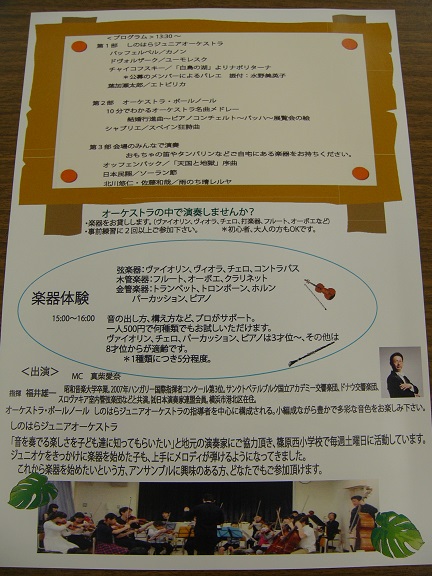 ＜プログラム＝13:30～
第1部　しのはらジュニアオーケストラ
パッフェルベル／カノン
ドヴォルザーク／ユーモレスク
チャイコフスキー／「白鳥の湖」よりナポリターナ
＊公募のメンバーによるバレエ　振付：水野美英子
葉加瀬太郎／エトピリカ
第2部　オーケストラ・ボールノール
10分でわかるオーケストラ名曲メドレー
結婚行進曲～ピアノコンチェルト～バッハ～展覧会の絵
シャブリエ／スペイン狂詩曲
第3部 会場のみんなで演奏
おもちゃの笛やタンバリンなどご自宅にある楽器をお持ちください。
オッフェンバック／「天国と地獄」序曲
日本民謡／ソーラン節
北川悠仁・佐藤和哉／雨のち晴レルヤ
オーケストラの中で演奏しませんか？
・楽器をお貸しします。（ヴァイオリン、ヴィオラ、チェロ、打楽器、フルート、オーボエなど
・事前練習に2回以上ご参加下さい。　＊初心者、大人の方もOKです。
弦楽器：ヴァイオリン、ヴィオラ、チェロ、コントラバス
木管楽器：フルート、オーボエ、クラリネット
金管楽器：トランペット、トロンボーン、ホルン
パーカッション、ピアノ
楽器体験
15:00～16:00
音の出し方、構え方など、プロがサポート。
一人500円で何種類でもお試しいただけます。
ヴァイオリン、チェロ、パーカッション、ピアノは3才位～、その他は
8才位からが適齢です。
＊1種類につき5分程度。
＜出演＞
MC　真柴愛奈
指揮　福井雄一　昭和音楽大学卒業、2007年ハンガリー国際指揮者コンクール第3位。サンクトペテルブルク国立アカデミー交響楽団、ドナウ交響楽団、
スロヴァキア室内管弦楽団などに共演。就日本演奏家連盟会員。横浜市港北区在住。
オーケストラ・ボールノール　しのはらジュニアオーケストラの指導者を中心に構成される。小編成ながら豊かで多彩な音色をお楽しみ下さい。
しのはらジュニアオーケストラ
「音を奏でる楽しさを子ども達に知ってもらいたい」と地元の演奏家にご協力頂き、篠原西小学校で毎週土曜日に活動しています。
ジュニオケをきっかけに楽器を始めた子も、上手にメロディが弾けるようになってきました。
これから楽器を始めたいという方、アンサンブルに興味のある方、どなたでもご参加頂けます。